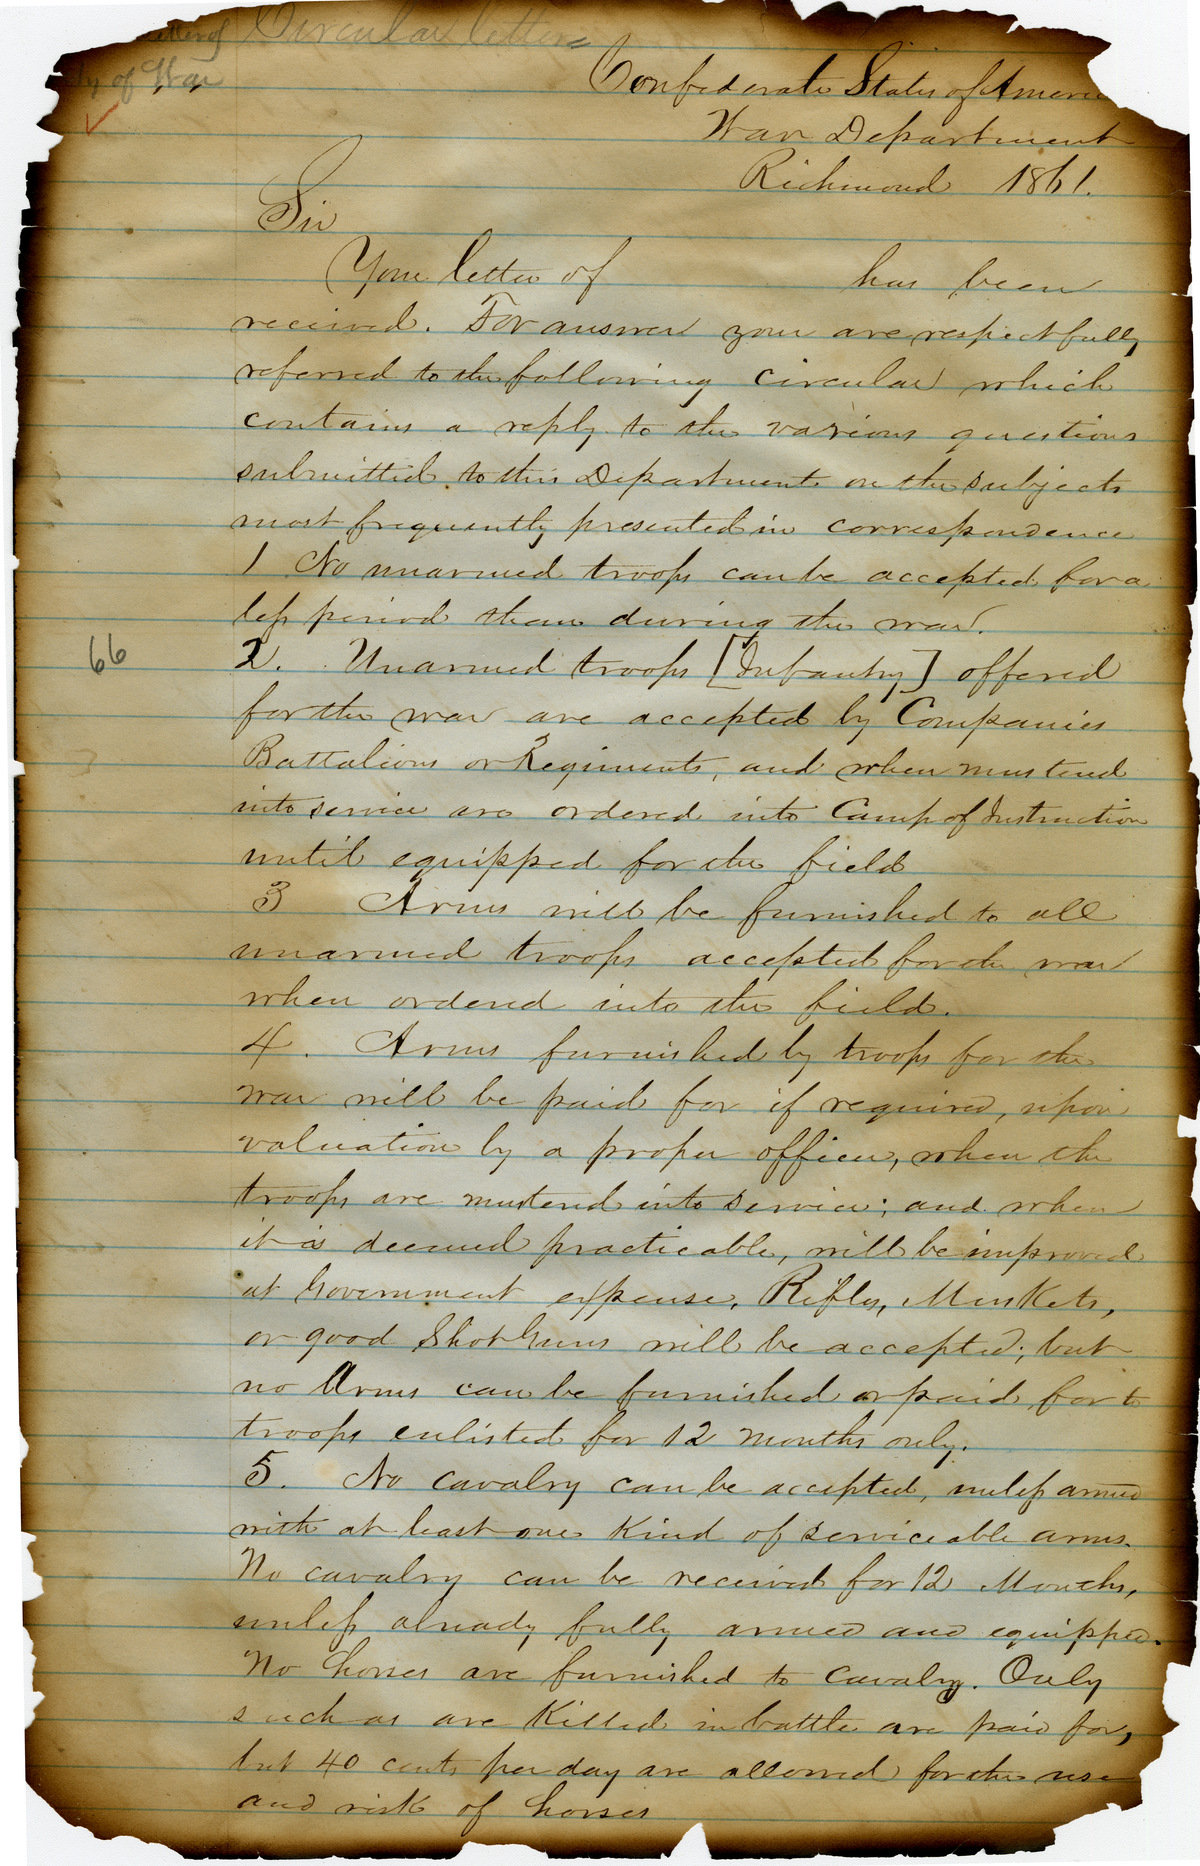 Circular letter=
of War
Confederate States of Ameri
War Department
Richmond 1861.
Sir
Your letter of has been
received. For answer your are respectfully
referred to the following circular which
contains a reply to the various questions
submitted to this Department on the subjects
most frequently presented in correspondence
1 No unarmed troops can be accepted for a
less period than during the war.
66
2. Unarmed troops [Infantry] offered
for the war are accepted by Companies
Battalions or Regiments, and when mustered
into service are ordered into Camp of Instruction
until equipped for the field
3 Arms will be furnished to all
unarmed troops accepted for the war
when ordered into the field.
4. Arms furnished by troops for the
war will be paid for if required, upon
valuation by a proper officer, when the
troops are mustered into service; and when
it is deemed practicable, will be improved
at Government expense. Rifles, Muskets,
or good Shot Guns will be accepted; but
no Arms can be furnished or paid for to
troops enlisted for 12 months only.
5. No cavalry can be accepted, unless armed
with at least one kind of serviceable arms.
No cavalry can be received for 12 Months,
unless already fully armed and equipped.
No horses are furnished to cavalry. Only
such as are Killed in battle are paid for,
but 40 cents per day are allowed for the use
and risk of horses